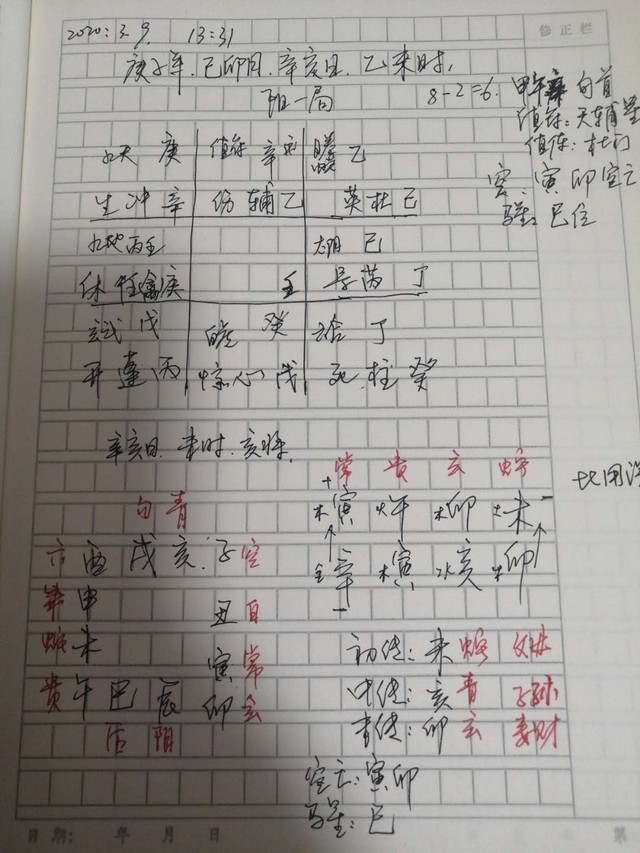 2020.3.9. 13:31
庚子年.己卯月.辛亥日.乙未时.
阳一局
8-2=6. 甲午辛 旬首
值符:天辅星
值使:杜门
空:寅卯空亡
马星:巳位
九天 庚 值符 辛 乙
生 冲 辛 伤 辅 乙 英 杜 己
九地 丙壬 太阴 己
休 任 庚 壬 景 芮 丁
玄武 戊 白虎 癸 六合 丁
开 蓬 丙 惊 心 戊 死 柱 癸
辛亥日.未时.亥将.
常 贵 玄 蛇
木寅 火午 木卯 土未
金辛 木寅 水亥 木卯
勾 青
六 酉 戌 亥 子 空
申 丑 白
蛇 未 寅 常
贵 午 巳 辰 卯 玄
后 阴
初传:未 蛇 父母
中传:亥 青 子孙
末传:卯 玄 妻财
空亡:寅卯
马星:巳
修正栏
比用
日期: 年 月 日
第